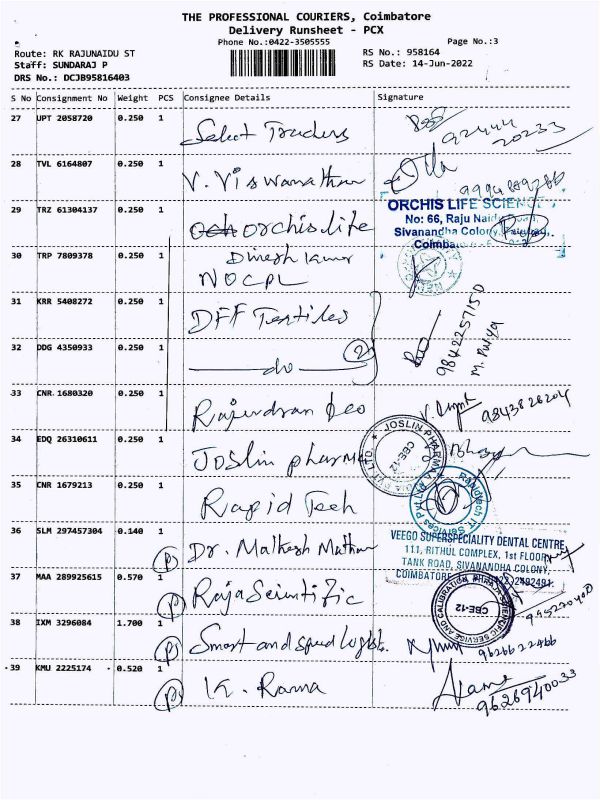 THE PROFESSIONAL COURIERS, Coimbatore
Delivery Runsheet - PCX
Phone No.:0422-3505555
Page No.:3
Route: RK RAJUNAIDU ST
RS No.: 958164
Staff: SUNDARAJ P
RS Date: 14-Jun-2022
DRS No.: DCJB95816403
S No Consignment No Weight PCS Consignee Details Signature
27 UPT 2058720 0.250 1 Select Traders
92444
20233
28 TVL 6164807 0.250 1 V. Viswanathan
29 TRZ 61304137 0.250 1 orchis life
ORCHIS LIFE SCIENC
No: 66, Raju Naidu
Sivanandha Colony,
Coimba
30 TRP 7809378 0.250 1 Dinesh kumar
NOCPL
31 KRR 5408272 0.250 1 DFF Textiles
9842257150
M. Priya
32 DDG 4350933 0.250 1 do 2
33 CNR 1680320 0.250 1 Rajendran Deo
9843828204
34 EDQ 26310611 0.250 1 Joslin pharma
JOSLIN PHARMA
CBE-12
35 CNR 1679213 0.250 1 Rapid Tech
Rapidtech IT Services Pvt Ltd
36 SLM 297457304 0.140 1 Dr. Malkesh
VEEGO SUPERSPECIALITY DENTAL CENTRE,
111, RITHUL COMPLEX, 1st FLOOR,
TANK ROAD, SIVANANDHA COLONY,
COIMBATORE
2492481
37 MAA 289925615 0.570 1 Raja Scientific
SCIENTIFIC SERVICE AND CALIBRATION
CBE-12
38 IXM 3296084 1.700 1 Smart and speed
9626622466
39 KMU 2225174 0.520 1 K. Rama
9626940033